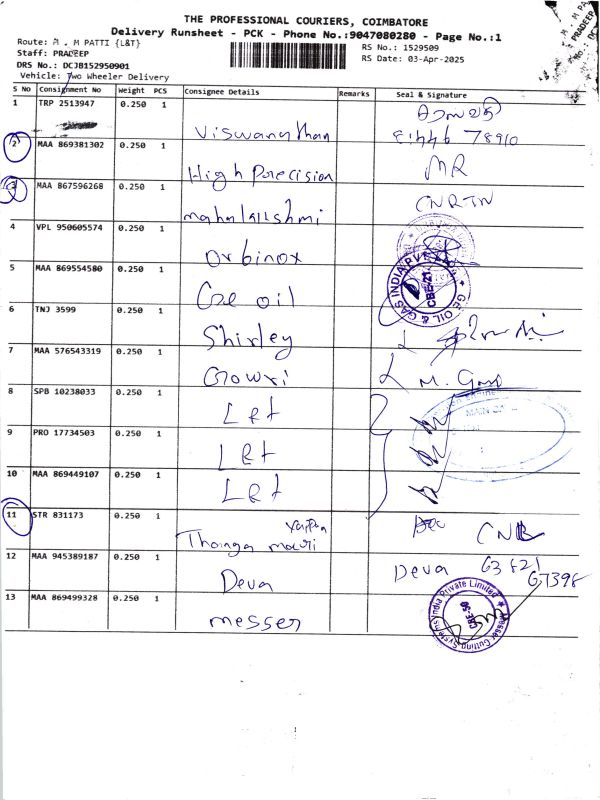 THE PROFESSIONAL COURIERS, COIMBATORE
Delivery Runsheet - PCK - Phone No.:9047080280 - Page No.:1
Route: M . M PATTI {L&T}
RS No.: 1529509
Staff: PRADEEP
RS Date: 03-Apr-2025
DRS No.: DCJB152950901
Vehicle: Two Wheeler Delivery
S No Consignment No Weight PCS Consignee Details Remarks Seal & Signature
1 TRP 2513947 0.250 1 Viswanathan
2 MAA 869381302 0.250 1 High Precision MR
3 MAA 867596268 0.250 1 mahalakshmi
4 VPL 950605574 0.250 1 Orbinox
5 MAA 869554580 0.250 1 Ge oil GE OIL & GAS INDIA PVT CBE-21
6 TNJ 3599 0.250 1 Shirley
7 MAA 576543319 0.250 1 Gowri
8 SPB 10238033 0.250 1 L&t
9 PRO 17734503 0.250 1 L&t
10 MAA 869449107 0.250 1 L&t
11 STR 831173 0.250 1 Thanga mauri
12 MAA 945389187 0.250 1 Deva Deva 63821 67398
13 MAA 869499328 0.250 1 messer Messer Cutting Systems India Private Limited CBE-50